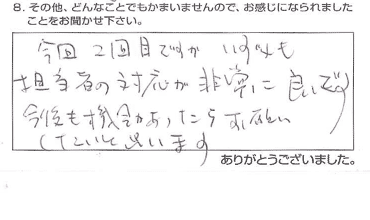 8. その他、どんなことでもかまいませんので、お感じになられました
ことをお聞かせ下さい。
今回 2回目ですが いずれも
担当者の対応が非常に良いです
今後も機会があったらお願い
したいと思います
ありがとうございました。